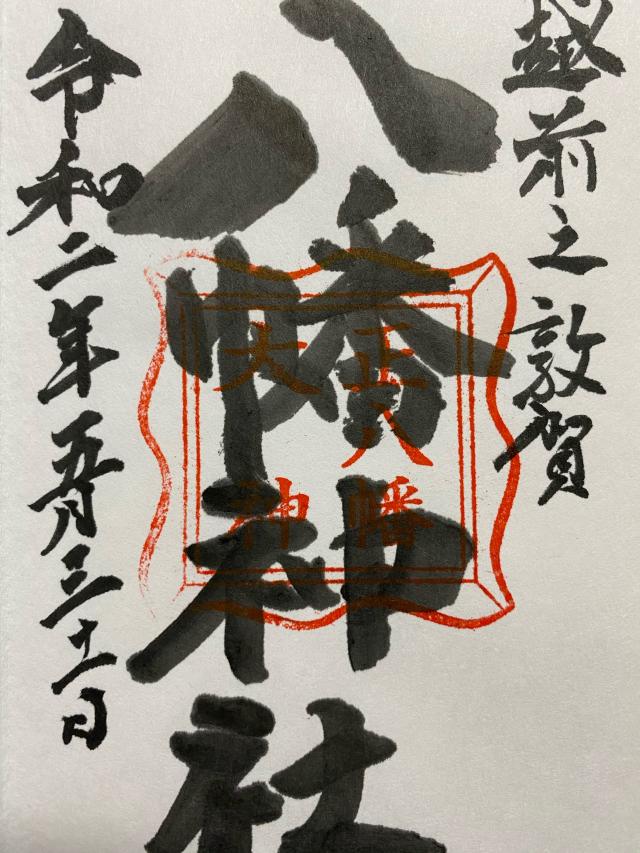 越前之敦賀
八幡神社
正八幡
大神
令和二年五月三十一日